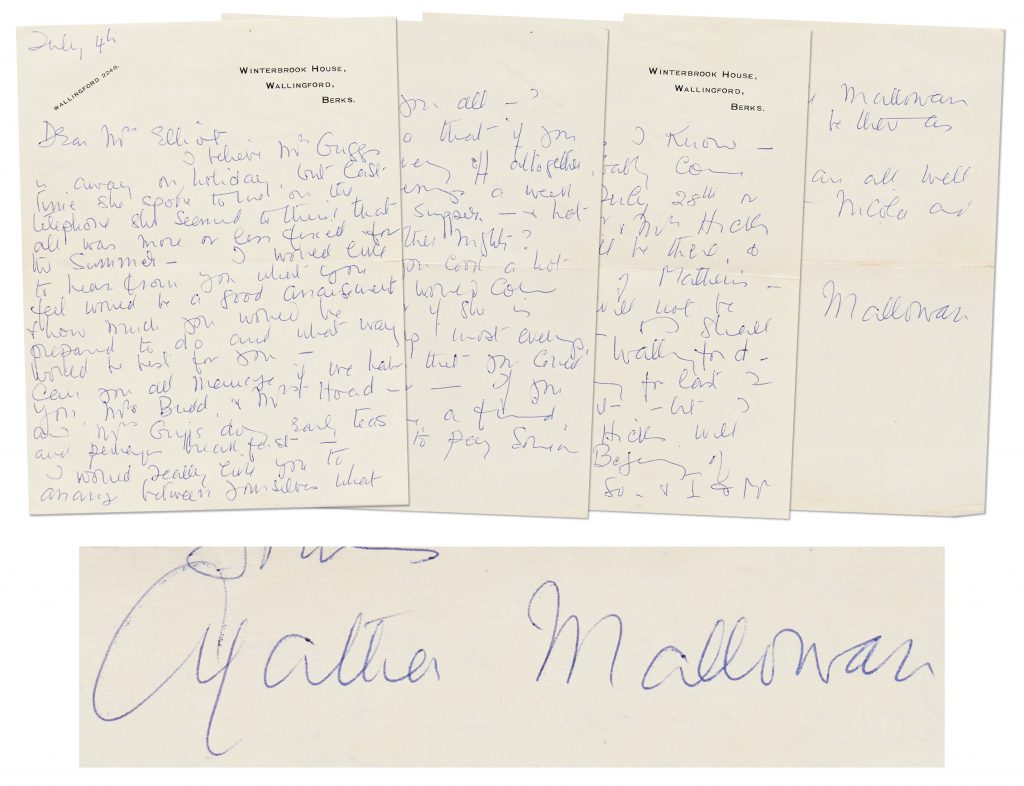 July 4th
WALLINGFORD 2248.
WINTERBROOK HOUSE,
WALLINGFORD,
BERKS.
Dear Mrs Elliot
I believe Mrs Griggs
is away on holiday, but last
time she spoke to me on the
telephone she seemed to think that
all was more or less fixed for
the Summer — I would like
to hear from you what you
feel would be a good arrangement
& how much you would be
prepared to do and what way
would be best for you —
Can you all manage if we have
you, Mrs Budd, & Mrs Hoad —
and Mrs Griggs doing early teas
and perhaps breakfast —
I would really like you to
arrange between yourselves what
you all — ?
that if you
off altogether,
a week
Supper — & hot
nights?
cook a hot
would come
if she is
most evenings,
that you could
— if you
a friend,
to pay
WINTERBROOK HOUSE,
WALLINGFORD,
BERKS.
I know —
come
July 28th or
& Mrs Hicks
be there, &
Mathew —
will not be
shall
Wallingford —
for last 2
Hicks will
of
So — & I
Mallowan
be there as
all well
— Nicola and
Mallowan
Agatha Mallowan